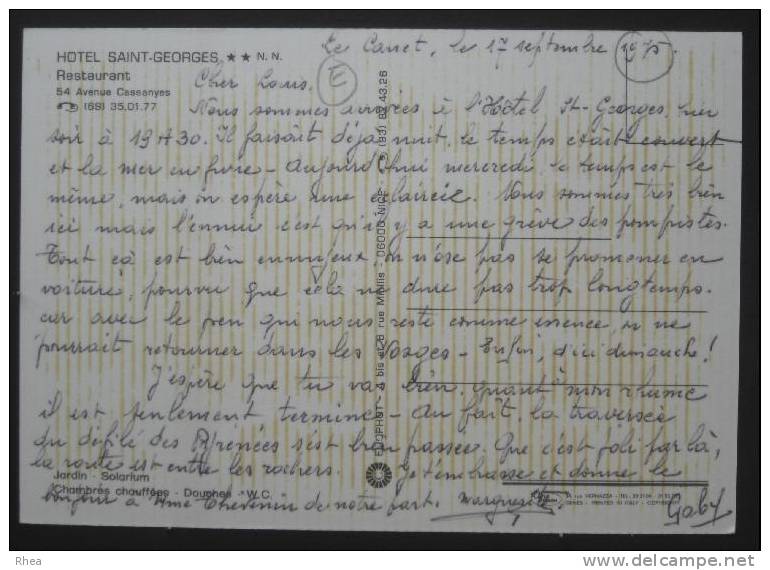 HOTEL SAINT-GEORGES ★★ N.N.
Restaurant
54 Avenue Cassanyes
(69) 35.01.77
Le Canet, le 17 septembre 1975.
Cher Louis,
E
Nous sommes arrivées à l'Hôtel St-Georges, hier
soir à 19 H 30. Il faisait déjà nuit, le temps était couvert
et la mer en furie - Aujourd'hui mercredi, le temps est le
même, mais on espère une éclaircie. Nous sommes très bien
ici mais l'ennui c'est qu'il y a une grève des pompistes.
Tout ça est bien ennuyeux, on n'ose pas se promener en
voiture, pourvu que cela ne dure pas trop longtemps.
car avec le peu qui nous reste comme essence, on ne
pourrait retourner dans les Vosges - Enfin, d'ici dimanche!
J'espère que tu vas bien, quant à mon rhume
il est seulement terminé - Au fait, la traversée
du défilé des Pyrénées s'est bien passée. Que c'est joli par là,
la route est entre les rochers. Je t'embrasse et donne le
bonjour à Mme Thevenin de notre part. Marguerite
Gaby
Jardin - Solarium
Chambres chauffées - Douches - W.C.
EDOPHOT - 4 bis et 6 rue Miollis - 06000 NICE - (93) 83.43.26
Rhea
delcampe.net